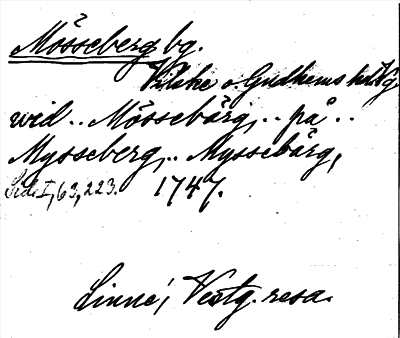 Mösseberg bg.
Vilske o. Gudhems hd Vg.
wid .. Mössebärg, .. på ..
Mysseberg, .. Myssebärg,
Sid. I, 63, 223. 1747.
Linné, Vestg. resa.